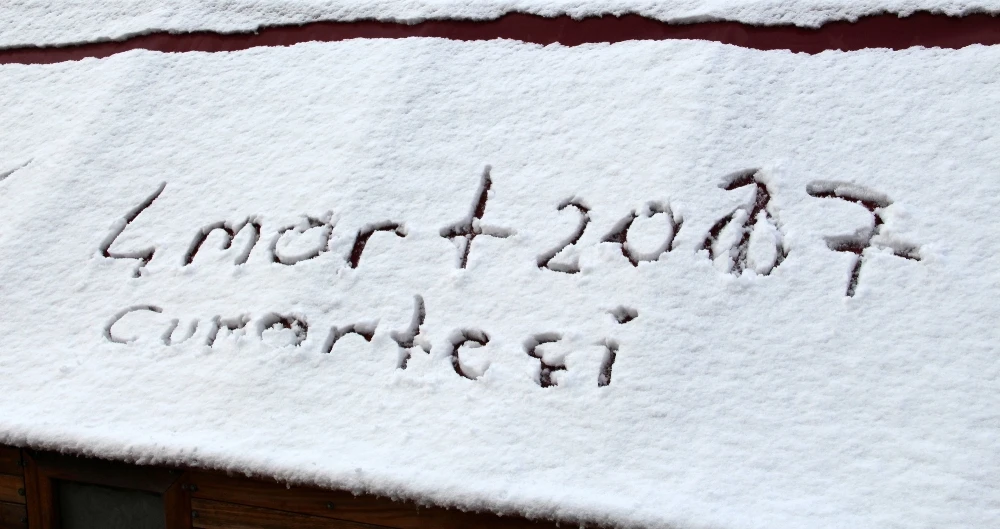 4 mart 2017
cumartesi